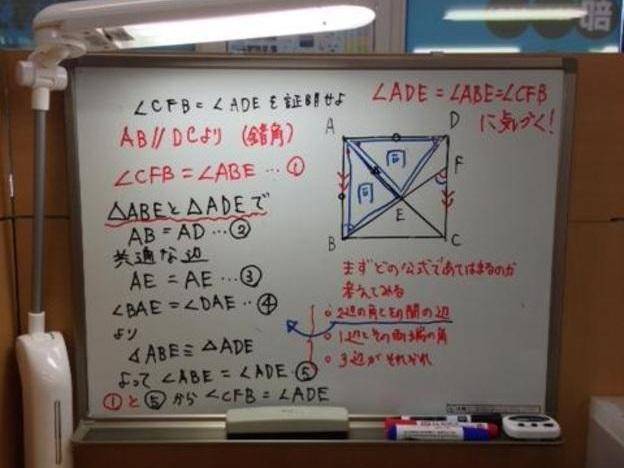 ∠CFB = ∠ADE を証明せよ
AB // DCより (錯角)
∠CFB = ∠ABE … ①
△ABEと△ADEで
AB = AD … ②
共通な辺
AE = AE … ③
∠BAE = ∠DAE … ④
より
△ABE ≡ △ADE
よって ∠ABE = ∠ADE ⑤
① と ⑤ から ∠CFB = ∠ADE
∠ADE = ∠ABE = ∠CFB
に気づく!
A D
同
同 F
E
B C
まずどの公式であてはまるのか
考えてみる
○ 2辺の角とその間の辺
○ 1辺とその両端の角
○ 3辺がそれぞれ